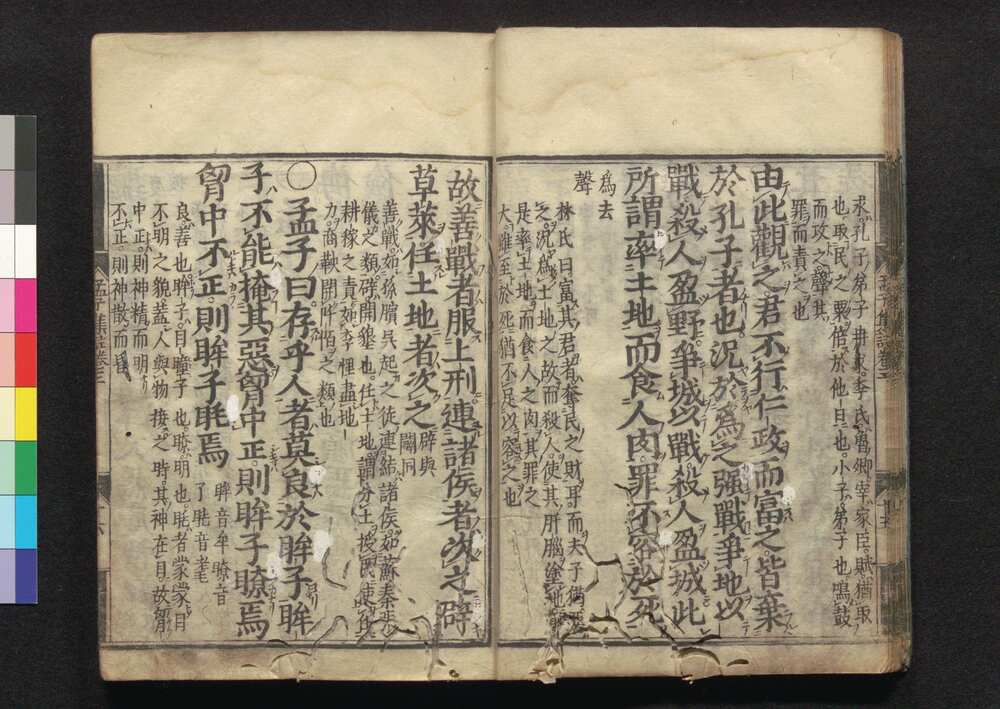 求孔子弟子冉求季氏魯卿宰家臣賦猶取
也取民之粟倍於他日也小子弟子也鳴鼓
而攻之聲其
罪而責之也
由此觀之君不行仁政而富之皆棄
於孔子者也況於為之强戰爭地以
戰殺人盈野爭城以戰殺人盈城此
所謂率土地而食人肉罪不容於死
為去
聲
林氏曰富其君者奪民之財耳而夫子猶惡
之況為土地之故而殺人使其肝腦塗地則
是率土地而食人之肉其罪之
大雖至於死猶不足以容之也
故善戰者服上刑連諸侯者次之辟
草萊任土地者次之
辟與
闢同
善戰如孫臏吳起之徒連結諸侯如蘇秦張
儀之類辟開墾也任土地謂分土授民使任
耕稼之責如李悝盡地
力商鞅開阡陌之類也
〇孟子曰存乎人者莫良於眸子眸
子不能掩其惡胷中正則眸子瞭焉
胷中不正則眸子眊焉
眸音牟瞭音
了眊音耄
良善也眸子目瞳子也瞭明也眊者蒙蒙目
不明之貌蓋人與物接之時其神在目故胷
中正則神精而明
不正則神散而昏